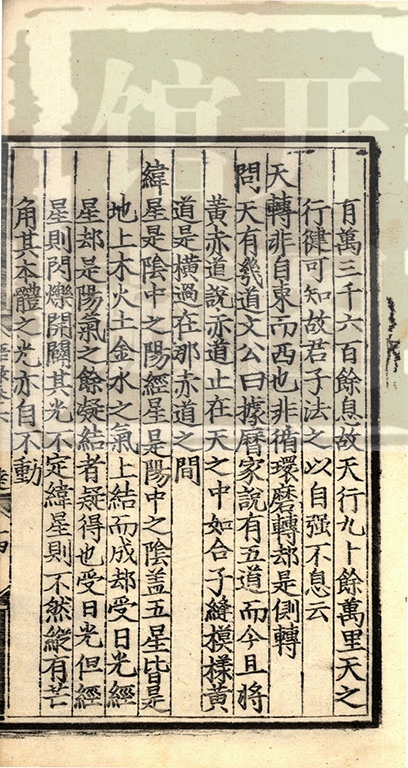 百萬三千六百餘息故天行九十餘萬里天之
行健可知故君子法之以自强不息云
天轉非自東而西也非循環磨轉却是側轉
問天有幾道文公曰據曆家說有五道而今且將
黃赤道說赤道正在天之中如合子縫模樣黃
道是橫過在那赤道之間
緯星是陰中之陽經星是陽中之陰盖五星皆是
地上木火土金水之氣上結而成却受日光經
星却是陽氣之餘凝結者疑得也受日光但經
星則閃爍開闔其光不定緯星則不然縱有芒
角其本體之光亦自不動